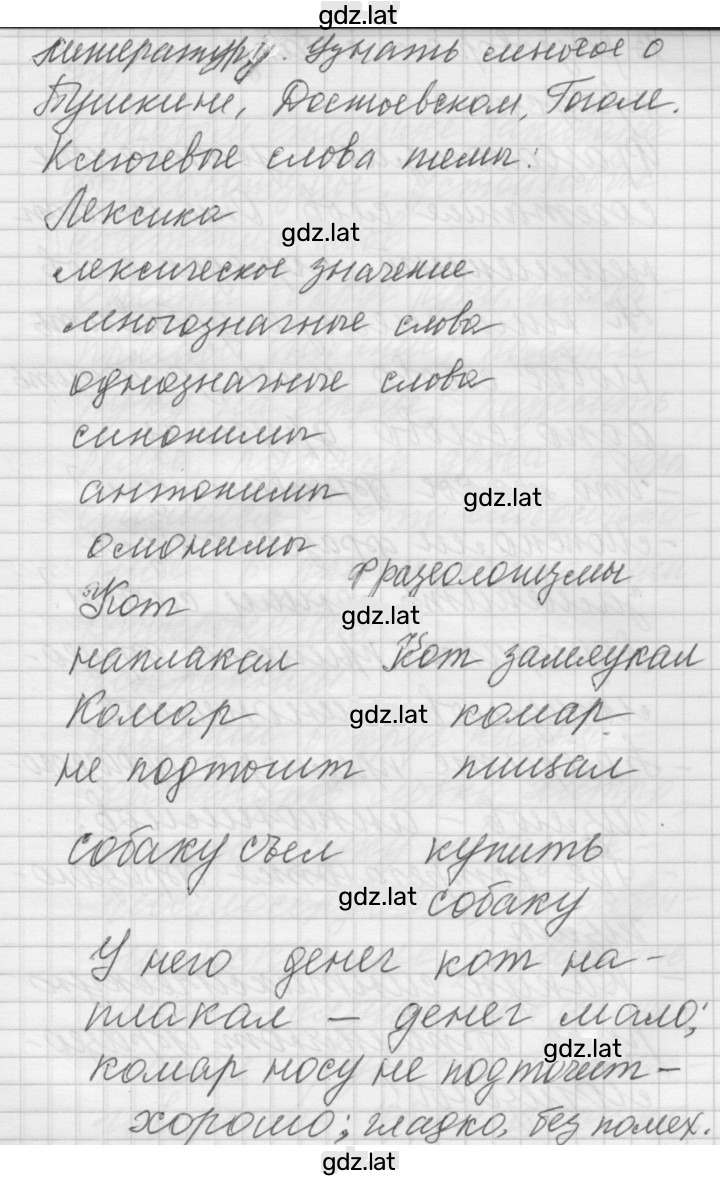 gdz.lat
литературу. Узнать многое о
Пушкине, Достоевском, Гоголе.
Ключевые слова темы:
Лексика
gdz.lat
лексическое значение
многозначные слова
однозначные слова
синонимы
антонимы
gdz.lat
омонимы
фразеологизмы
Кот
gdz.lat
наплакал Кот замяукал
Комар gdz.lat комар
не подточит пищал
собаку съел купить
gdz.lat собаку
У него денег кот на-
плакал – денег мало;
gdz.lat
комар носу не подточит –
хорошо; гладко, без помех.
gdz.lat